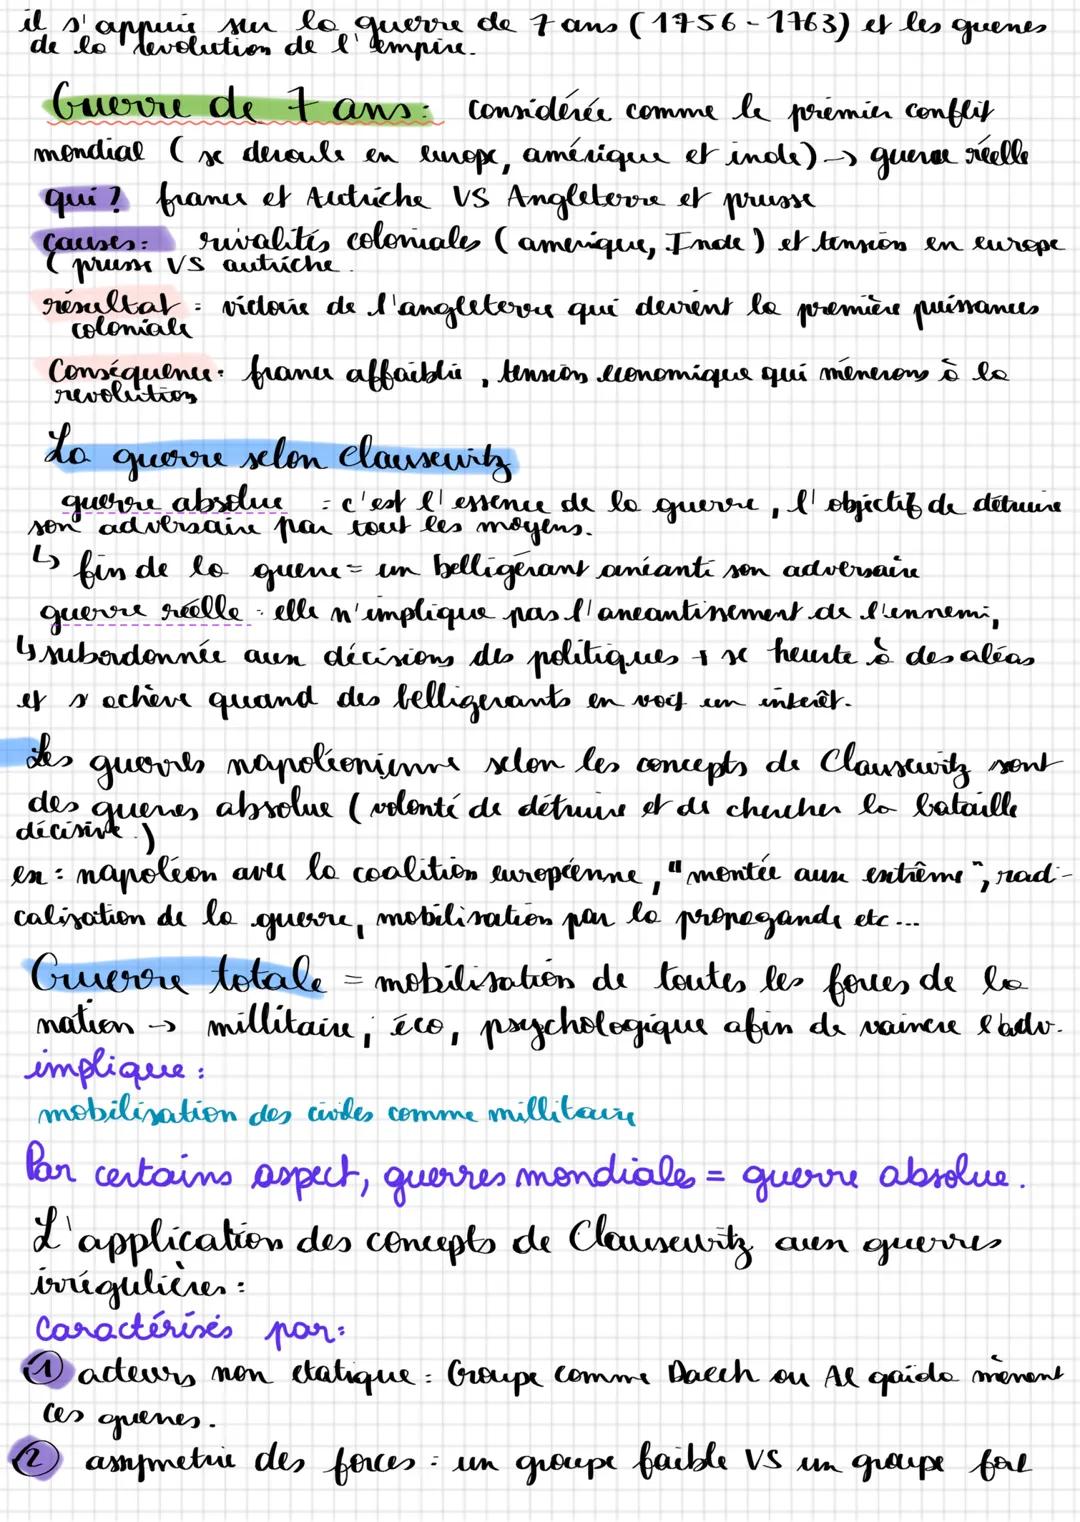 il s'appuie sur la guerre de 7 ans (1756-1763) et les guerres
de la revolution de l'empire.
Guerre de 7 ans : considérée comme le premier conflit
mondial (se deroule en europe, amérique et inde) → guerre réelle
qui ? france et Autriche VS Angleterre et prusse
causes : rivalités coloniales (amerique, Inde) et tension en europe
(prusse VS autriche.
résultat : victoire de l'angleterre qui devient la première puissances
coloniale
Conséquence : france affaiblie, tension economique qui mènerons à la
revolution
La guerre selon Clausewitz
guerre absolue = c'est l'essence de la guerre, l'objectif de détruire
son adversaire par tout les moyens.
↳ fin de la guerre = un belligérant anéanti son adversaire
guerre réelle : elle n'implique pas l'aneantissement de l'ennemi,
↳ subordonnée aux décisions des politiques + se heurte à des aléas
et s'achève quand des belligerants en voit un intérêt.
Les guerres napoléonienne selon les concepts de Clausewitz sont
des guerres absolue (volonté de détruire et de chercher la bataille
décisive.)
ex : napoléon avec la coalition européenne, "montée aux extrême", radi-
calisation de la guerre, mobilisation par la propagande etc...
Guerre totale = mobilisation de toutes les forces de la
nation → millitaire, éco, psychologique afin de vaincre l'adv.
implique :
mobilisation des civiles comme millitaire
Par certains aspect, guerres mondiales = guerre absolue.
L'application des concepts de Clausewitz aux guerres
irrégulières :
Caractérisés par :
1 acteurs non etatique : Groupe comme Daech ou Al qaida mènent
ces guerres.
2 assymetrie des forces : un groupe faible VS un groupe fort